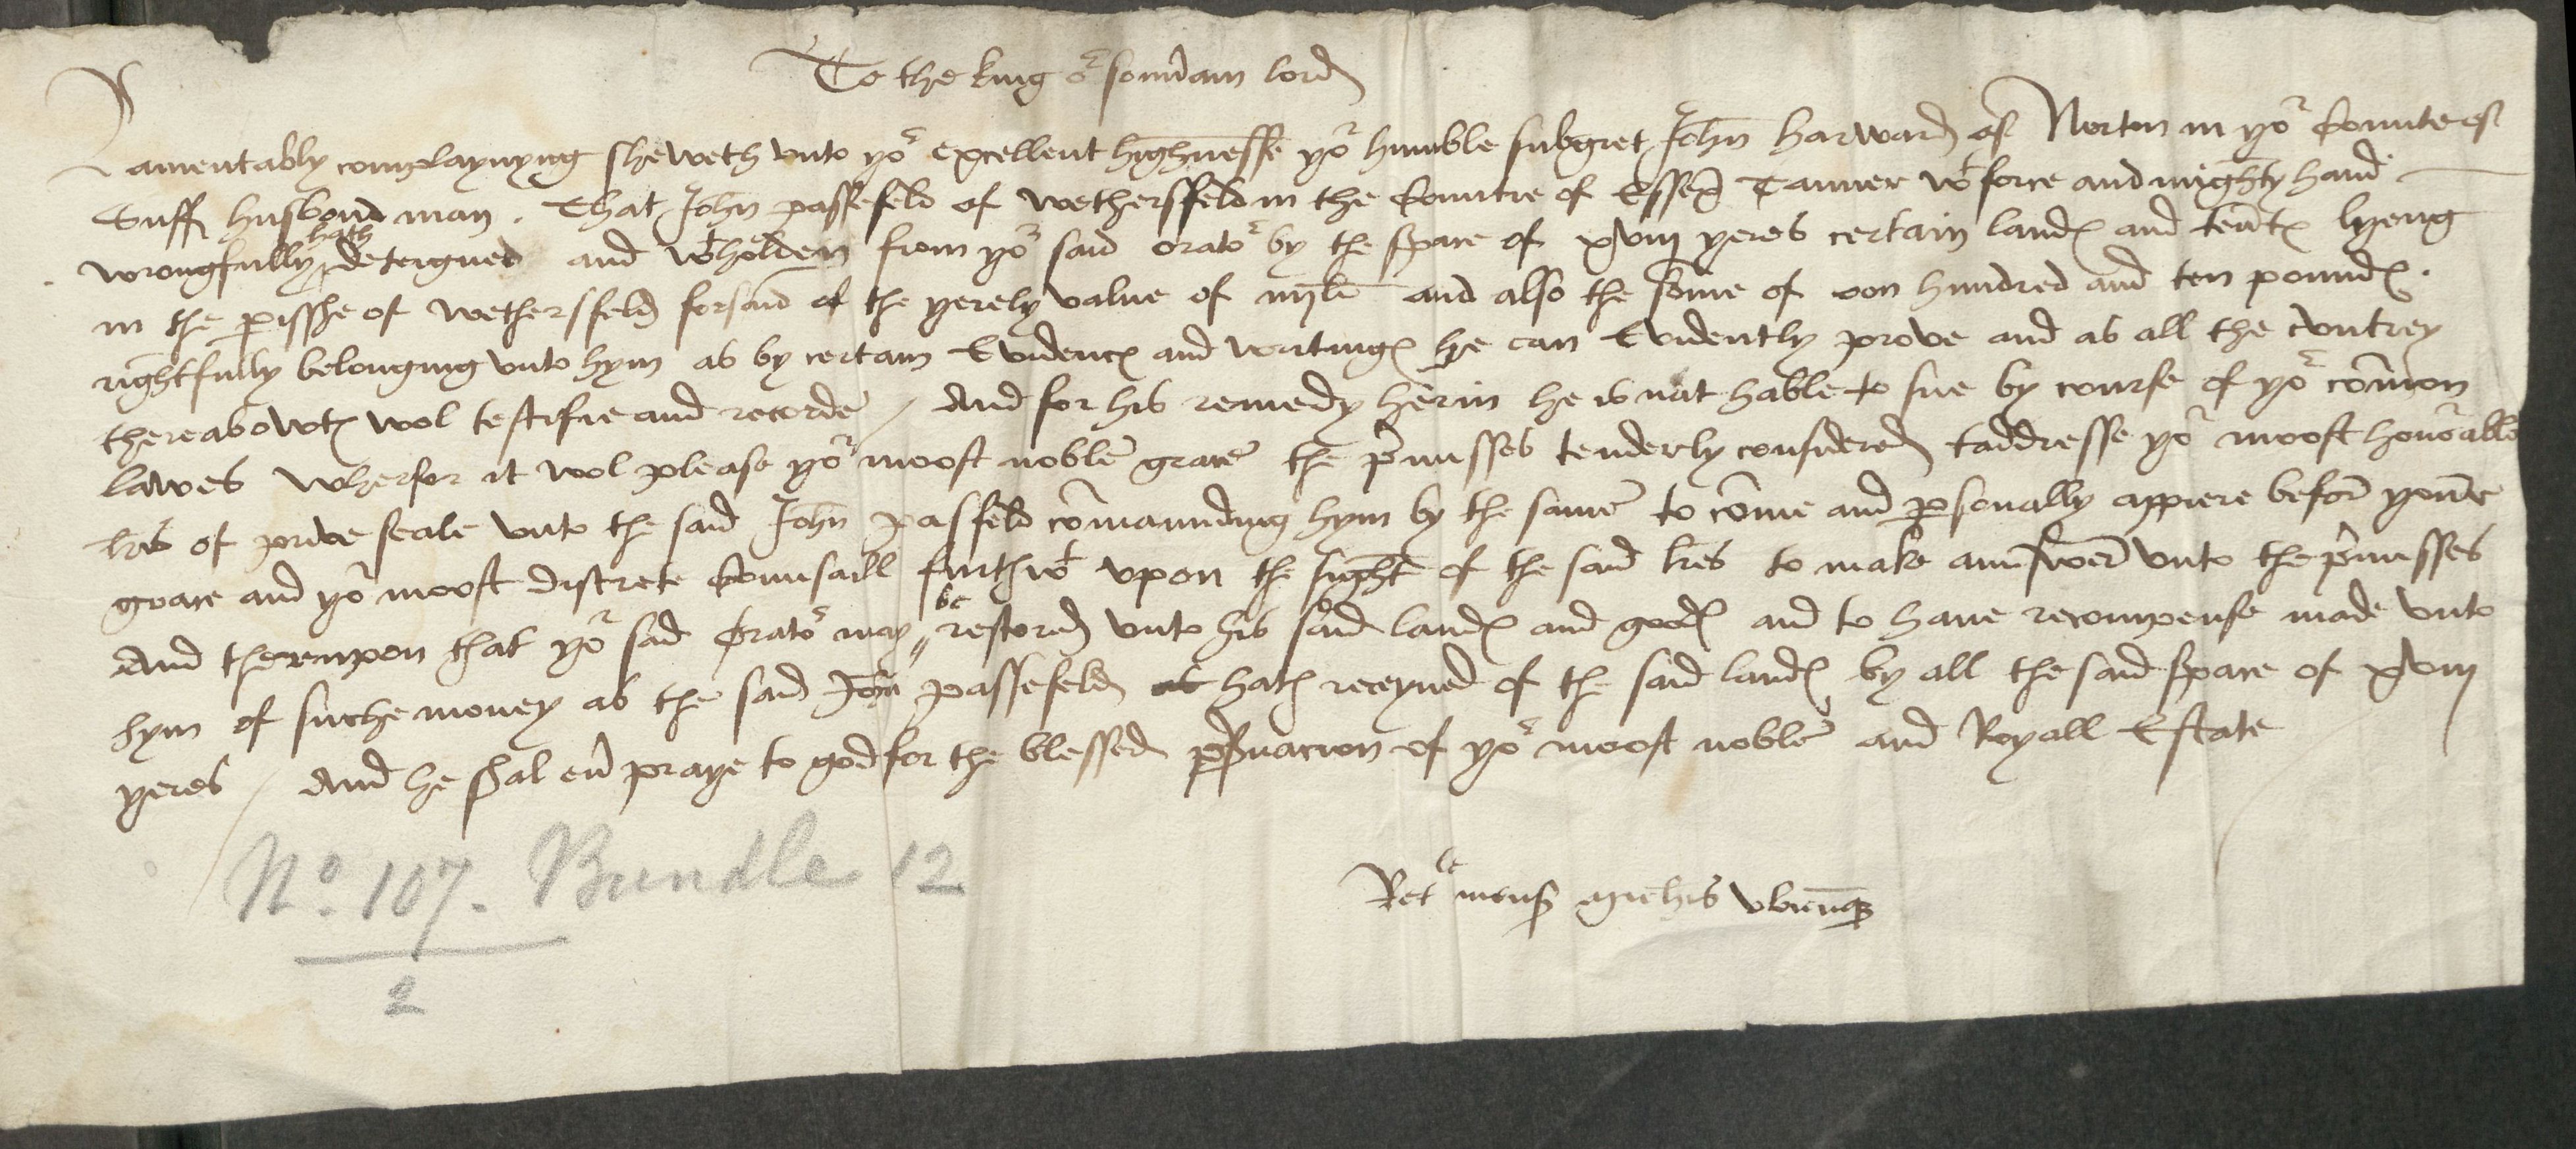 To the king oʳ souv̄ain lord
Lamentably complaynyng sheweth vnto yoʳ excellent highnesse yoʳ humble subgiet John harward of Norton in yoʳ Counte of
Suff husbond man . That John passefeld of wethersfeld in the Countie of Essex Tanner wᵗ force and mighty hand
wrongfully hath deteigned and wᵗholden from yoʳ said oratoʳ by the space of xviij yeres certain landes and ten̄tes lyeng
in the p̱isshe of wethersfeld forsaid of the yerely value of iiij li and also the some of oon hundred and ten poundes .
rightfully belonging vnto hym as by certain Evidences and writinges he can Evidently prove and as all the cuntrey
thereabowtes wol testifie and recorde / And for his remedy herin he is nat hable to sue by course of yoʳ com̄on
lawes Wherfor it wol please yoʳ moost noble grace the p̄misses tenderly considered taddresse yoʳ moost honoʳable
lr̄es of prive seale vnto the said John Pasfeld com̄aunding hym by the same to com̄e and p̱sonally appiere before youre
grace and yoʳ moost discrete Counsaill furthwᵗ vpon the sight of the said lr̄es to make aunswer vnto the p̄misses
And therevpon that yoʳ said Oratoʳ may be restored vnto his said landes and goodes and to haue recompense made vnto
hym of suche money as the said John passefeld hath receyued of the said landes by all the said space of xviij
yeres / And he shal eū praye to god for the blessed p̱s̄uacion of yoʳ moost noble and Royall Estate
Nº. 107. Bundle 12
2
Ret le mens̄ Mich̄is vbicūqȝ